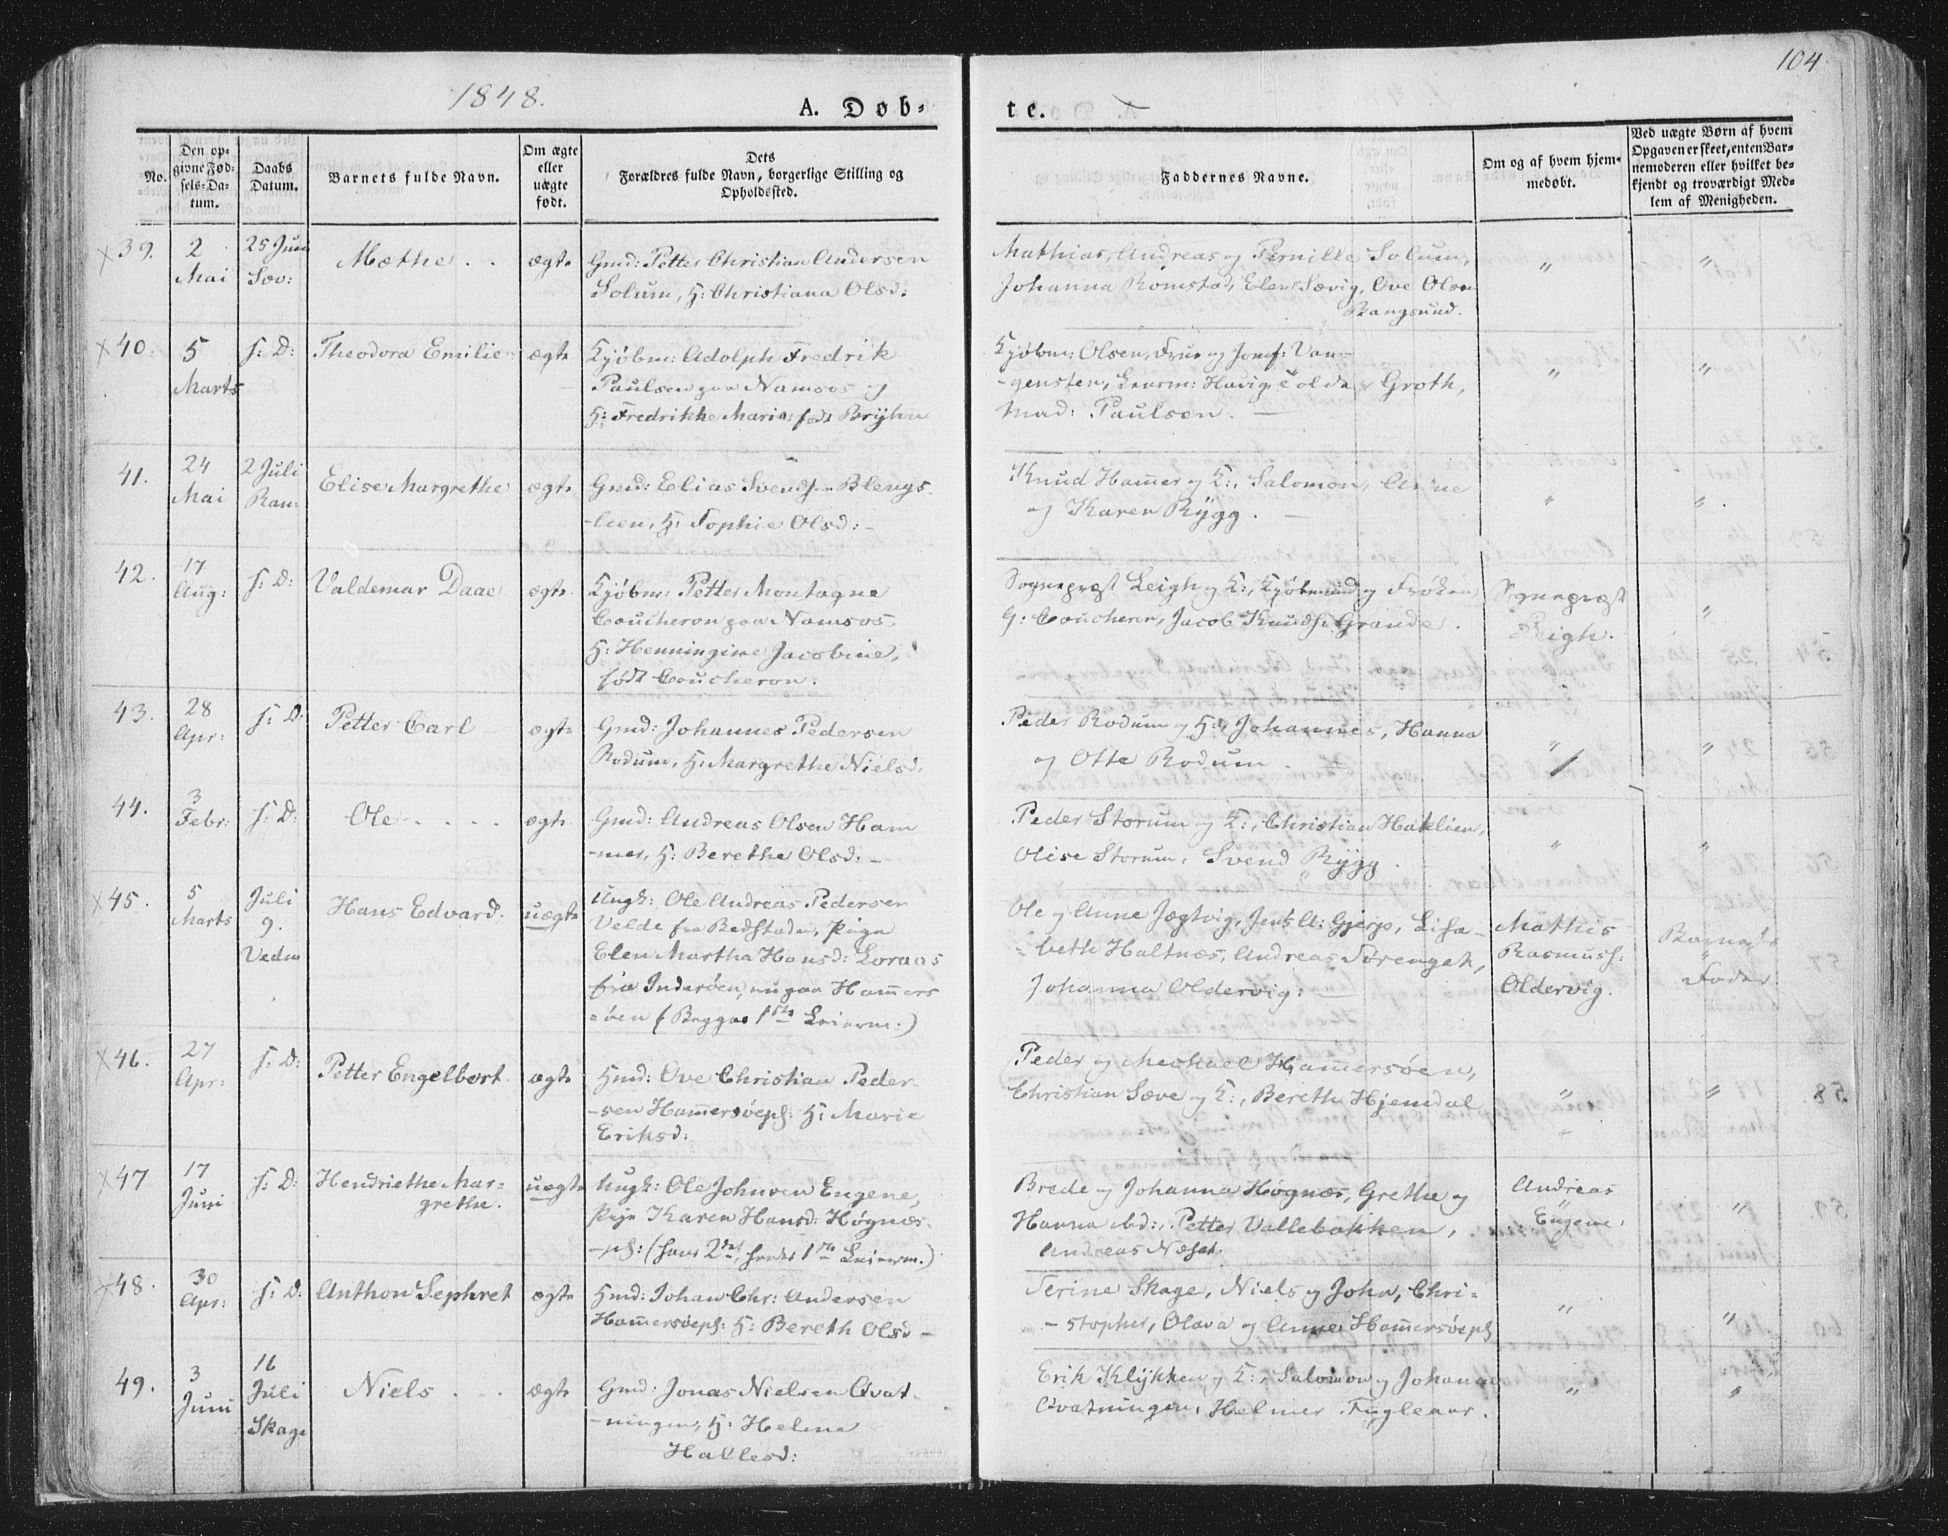 1848.
104
A. Døb-
te.
No.
Den op-
givne Fød-
sels-Da-
tum.
Daabs
Datum.
Barnets fulde Navn.
Om ægte
eller
uægte
født.
Dets
Forældres fulde Navn, borgerlige Stilling og
Opholdssted.
Faddernes Navne.
Om og af hvem hjem-
medøbt.
Ved uægte Børn af hvem
Opgaven er skeet, enten Bar-
nemoderen eller hvilket be-
kjendt og troværdigt Med-
lem af Menigheden.
39.
2
Mai
25 Juni
Sæv:
Mæthe
ægte
Gmd: Petter Christian Andersen
Solum, H: Christiana Olsd:
Mathias, Andreas og Pernille Solum,
Johanna Romstad, Elen Sævig, Ove Olsen
Bangsund.
"
"
40.
5
Marts
s: D:
Theodora Emilie
ægte
Kjøbm: Adolph Fredrik
Paulsen paa Namsos og
H: Fredrikke Maria født Brÿhn
Kjøbm: Olsen, Frue og Jomf: Van-
-gensten, Havig, Groth,
Mad: Paulsen.
"
"
41.
24
Mai
2 Juli
Ran:
Elise Margrethe
ægte
Gmd: Elias Svends. Blengs-
-lien, H: Sophie Olsd:
Knud Hammer og K:, Salomon,
og Karen Rÿgg.
"
"
42.
17
Aug:
s: D:
Valdemar Daae
ægte
Kjøbm: Petter Montagne
Coucheron paa Namsos,
H: Henningine Jacobine,
født Coucheron.
Sognepræst Leigh og K:, og Frøken
G: Coucheron, Jacob Knuds. Grande.
Sognepræst
Leigh.
"
43.
28
Apr:
s: D:
Petter Carl
ægte
Gmd: Johannes Pedersen
Rodum, H: Margrethe Nielsd:
Peder Rodum og H:, Johannes, Hanna
og Otte Rodum.
"
"
44.
3
Febr:
s: D:
Ole
ægte
Gmd: Andreas Olsen Ham
-mer, H: Berethe Olsd:
Peder Storum og K:, Christian Haklien,
Olise Storum, Svend Rÿgg.
"
"
45.
5
Marts
Juli
9.
Vedm
Hans Edvard.
uægte
Ungk: Ole Andreas Pedersen
Velde fra Bedstaden, Pige
Elen Martha Hansd: Loraas
fra Inderøen, nu paa Hammers
=øen (Begges 1ste Leierm.)
Ole og Anne Jægtvig, Jens A: Gjerp, Lisa-
-beth Haltnæs, Andreas Sørenget,
Johanna Oldervig.
Mathis
Rasmuss:
Oldervig.
Barnets
Fader
46.
27
Apr:
s: D:
Petter Engelbert
ægte
Hmd: Ove Christian Peder-
-sen Hammersøepl: H: Marie
Eriksd:
Peder og Mechael Hammersøen,
Christian Sæve og K:, Bereth Hjemdal
"
"
47
17
Juni
s: D:
Hendriethe Mar-
grethe.
uægte
Ungk: Ole Johnsen Engene,
Pige Karen Hansd: Høgnæs-
-pl: (hans 2det, hendes 1ste Leierm.)
Brede og Johanna Høgnæs, Grethe og
Hanna ibd:, Petter Vallebakken,
Andreas Næset.
Andreas
Engene.
"
48.
30
Apr:
s: D:
Anthon Sephret
ægte
Hmd: Johan Chr: Andersen
Hammersøepl: H: Bereth Olsd
Serine Skage, Niels og John, Chri-
-stopher, Olava og Anne Hammersøepl
"
"
49.
3
Juni
16
Juli
Skage
Niels
ægte
Gmd: Jonas Nielsen Qvat-
-ningen, H: Helene
Hallesd:
Erik Klÿkken og K:, Salomon og Johanna
Qvatningen, Helmer Fugleaar.
"
"